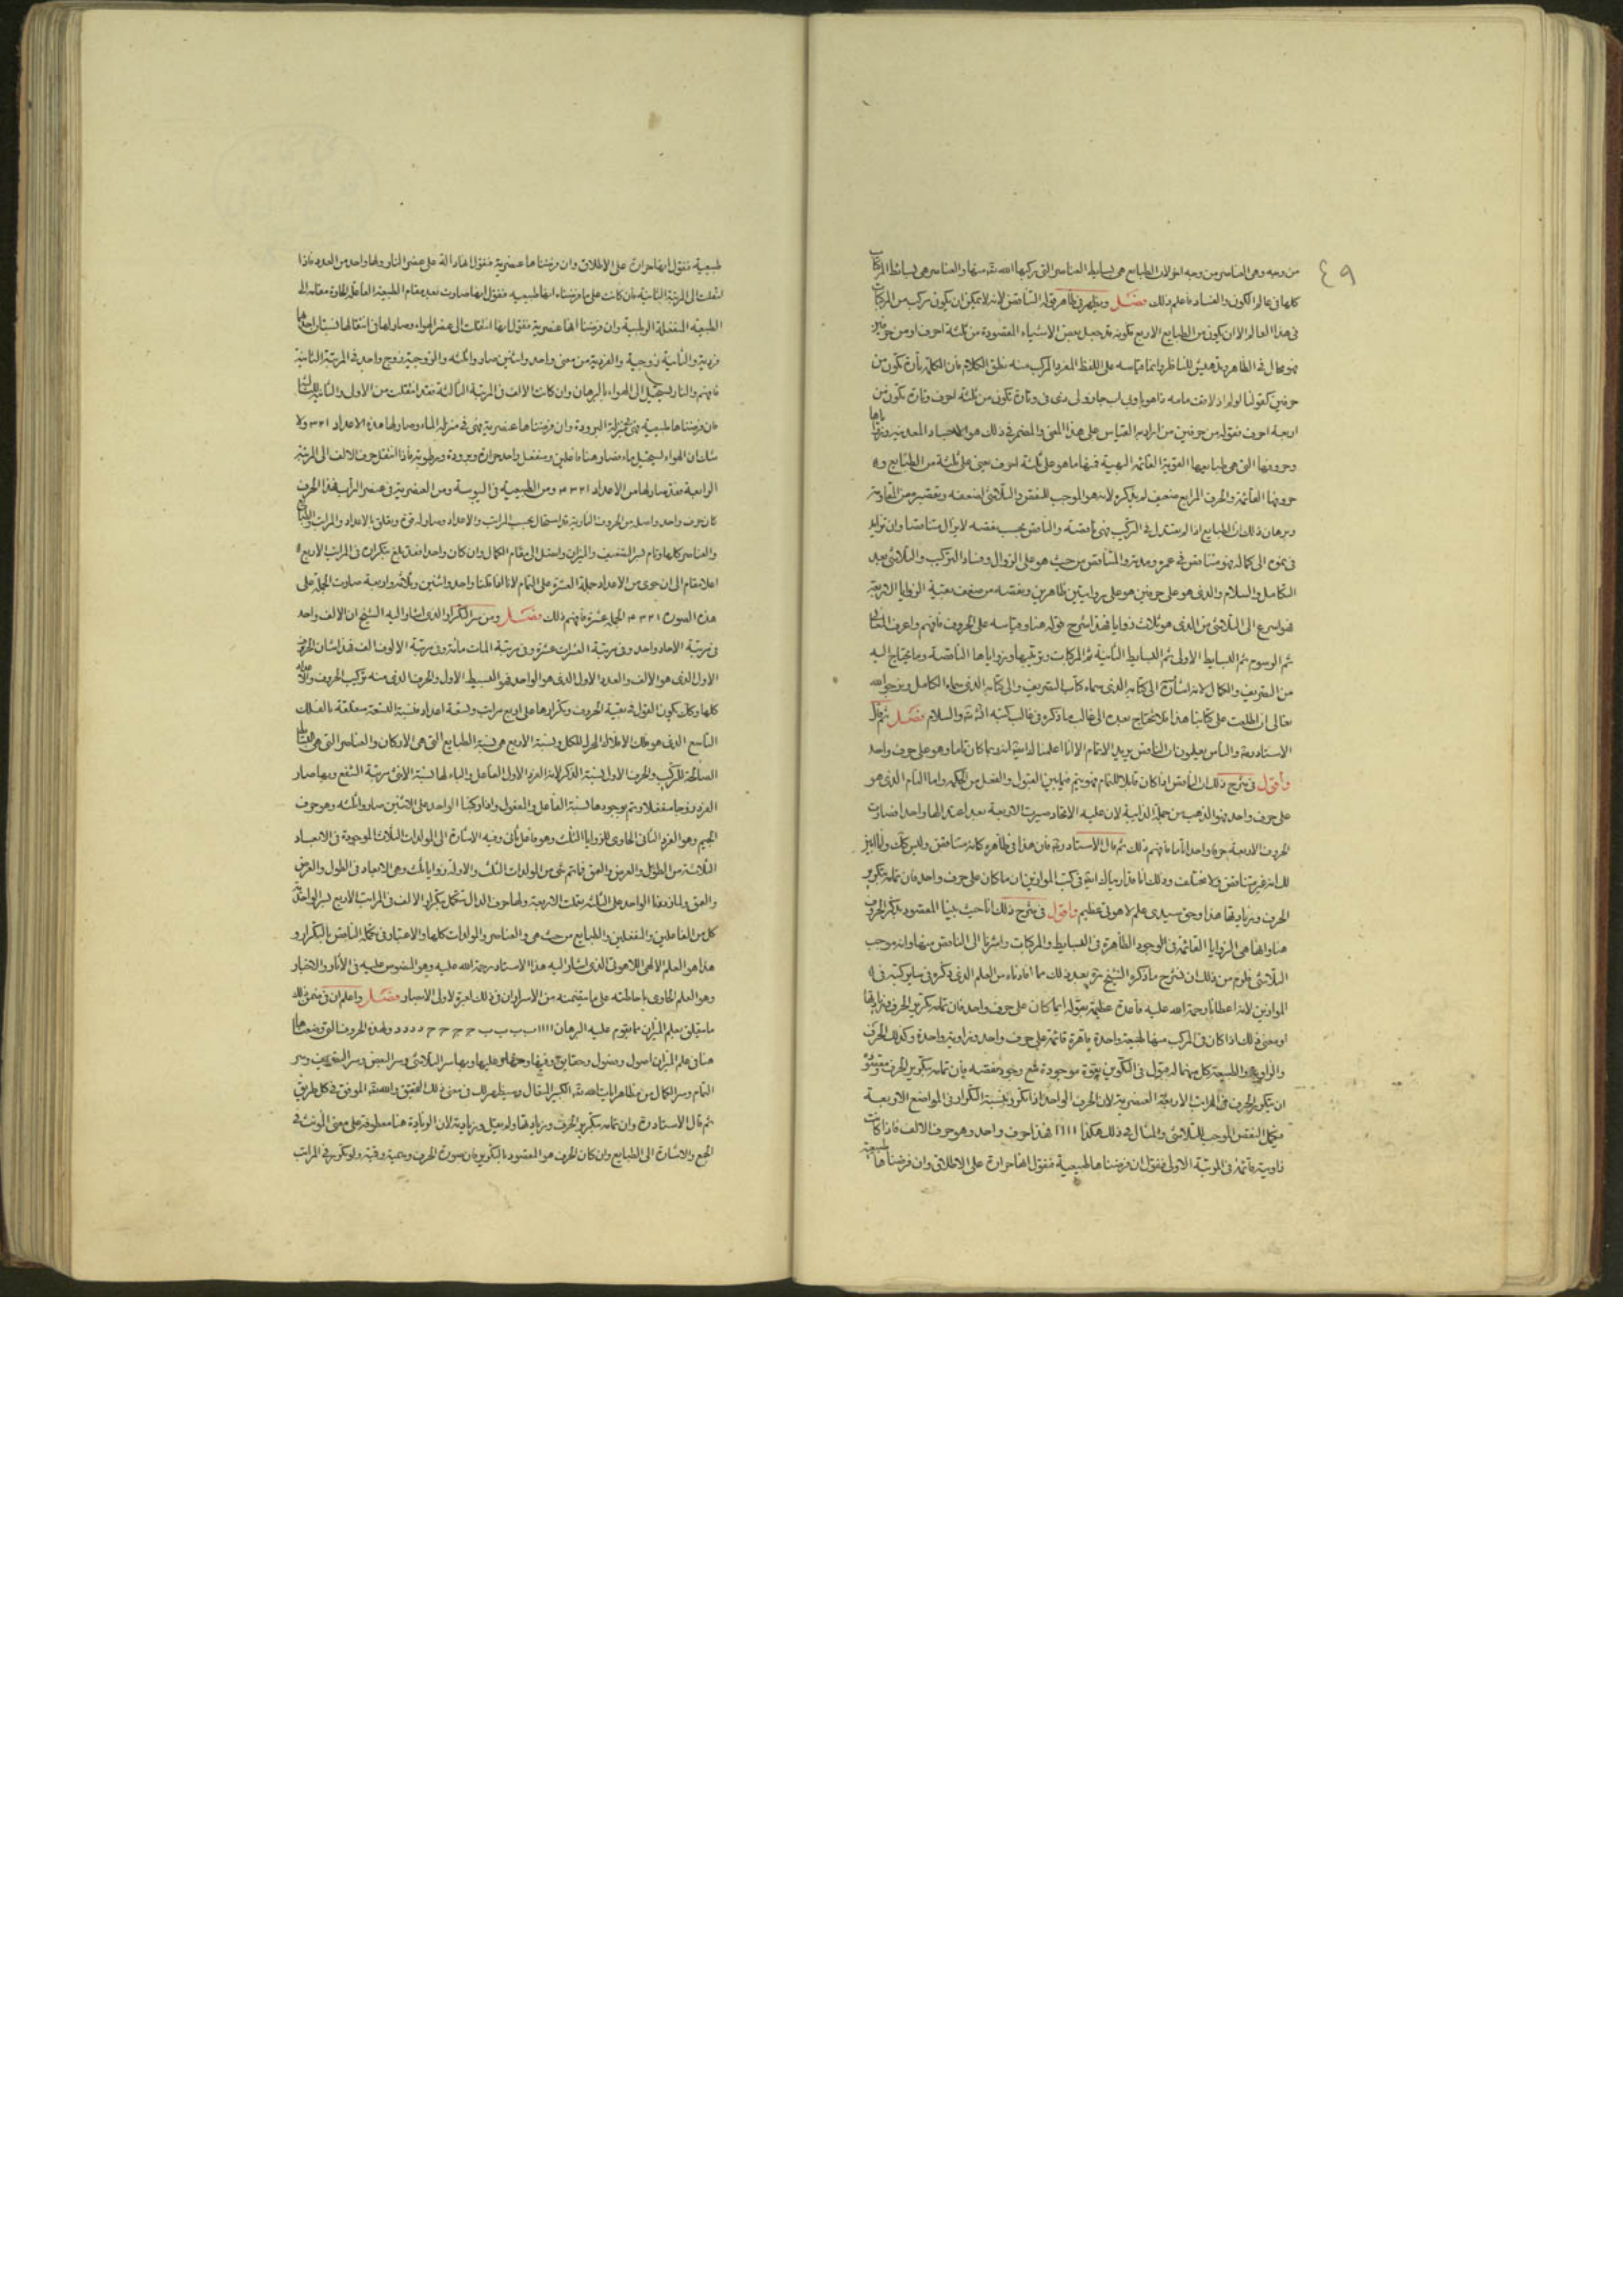 ٤٩
من وجه وهي العناصر من وجه اخر لان الطبايع هي بسايط العناصر التي ركبها الله تعالى منها والعناصر هي بسائط المركبات
كلها في عالم الكون والفساد فاعلم ذلك فصل ويظهر في ظاهر قوله التناقض لانه لا يمكن ان يكون مركب من المركبات
في هذا العالم الا ان يكون من الطبايع الاربع بكونه قد جعل بعض الاشياء المقصودة من ثلثة احرف او من حرفين
فهو محال في الظاهر وانما قياسه على اللفظ المفرد المركب منه نطق الكلام فان الكلمة تارة تكون من
حرفين كقولنا وتارة تكون من ثلثة احرف وتارة تكون من
اربعة احرف فقوله من حرفين من ايراده القياس على هذا المعنى والمضمر في ذلك هو الاجساد المعدنية
وحروفها التي هي طبايعها القوية القائمة البهية فمنها ما هو على ثلثة احرف يعني على ثلثة من الطبايع
حروفها القائمة والحرف الرابع ضعيف لم يذكره لانه هو الموجب للنقص والتلاشي لضعفه وتقصيره عن المقاومة
وبرهان ذلك ان الطبايع اذا لم يعتدل في التركيب فهي ناقصة والناقص بحسب نقصه لا يزال متناقصا وان تزايد
في نموه الى كماله فهو متناقص في عمره ومدته والمتناقص من حيث هو على الزوال وفساد التركيب والتلاشي بعد
التكامل والسلام والذي هو على حرفين هو على زاويتين ظاهرتين ونقصه من ضعف بقية الزوايا الاربعة
فهو اسرع الى التلاشي من الذي هو ثلاث زوايا فهذا شرح قوله هنا وقياسه على الحروف فافهم واعرف المعاني
ثم الرسوم ثم البسايط الاولى ثم البسايط الثانية ثم المركبات وترتيبها وزواياها الناقصة وما يحتاج اليه
من التصريف والكمال لانه اشارة الى كتابه الذي سماه كتاب التصريف والى كتابه الذي سماه الكامل ونرجو الله
تعالى ان اطلعت على كتابنا هذا فلا تحتاج بعده الى غالب ما ذكره في غالب كتبه ان شاء الله تعالى والسلام فصل ثم قال
الاستاذ رحمه والناس يعلمون ان الناقص يريد الاتمام الا انا اعلمنا لداعية انه ربما كان تاما وهو على حرف واحد
واقول في شرح ذلك ان الناقص اذا كان قابلا للتمام فهو يتم فيما بين القبول والفعل من الحكمة واما التام الذي هو
على حرف واحد فهو الذهب من جملة الذائبة لان عليه الاتحاد صيرت الاربعة بعد اعتدالها واحدا فصارت
الحروف الاربعة حرفا واحدا تاما فافهم ذلك ثم قال الاستاذ رحمه فان هذا في ظاهره كانه متناقض وليس كذلك وانا ابين
لك انه غير متناقض ولا مختلف وذلك انا قد اريناك اية في كتب الموازين ان ما كان على حرف واحد فان تمامه بتكرير
الحرف وزيادتها هذا وحق سيدي علم لاهوتي عظيم واقول في شرح ذلك انا حيث بينا المقصود بذكر الحروف
هنا وانها هي الزوايا القائمة في الوجود الظاهرة في البسايط والمركبات واشرنا الى الناقص منها وانه موجب
التلاشي فلزم من ذلك ان نشرح ما ذكره الشيخ رحمه بعد ذلك مما افادناه من العلم الذي ذكره في ساير كتبه في
الموازين لانه اعطانا رحمة الله عليه قاعدة عظيمة بقوله ايما كان على حرف واحد فان تمامه بتكرير الحرف وزيادتها
ومعنى ذلك اذا كان في المركب منها طبيعة واحدة ظاهرة قائمة على حرف واحد وزاوية واحدة وكذلك الحرف
والزاوية والطبيعة كل منهما له قبول في التكوين بقوة موجودة لمع وجود نقصه فان تمامه بتكرير الحرف
ان يتكرر الحرف في المراتب الاربعة العنصرية لان الحرف الواحد اذا تكرر بنسبة التكرار في المواضع الاربعة
فيكمل النقص الموجب للتلاشي والمثال في ذلك هكذا ١١١١ فهذا حرف واحد وهو حرف الالف فاذا كانت
زاوية قائمة في المرتبة الاولى فنقول ان فرضناها طبيعية فنقول انها حرارة على الاطلاق وان فرضناها
طبيعية
طبيعية فنقول انها حرارة على الاطلاق وان فرضناها عنصرية فنقول انها دالة على عنصر النار ولها واحد من العدد فاذا
انتقلت الى المرتبة الثانية فان كانت على ما فرضناه انها طبيعية فنقول انها صارت بعد مقام الطبيعة الفاعلة الحارة منقلة الى
الطبيعة المنفعلة الرطبة وان فرضنا انها عنصرية فنقول انها انتقلت الى عنصر الهواء وصار لها في انتقالها نسبتان احدها
فردية والثانية زوجية والفردية من معنى واحد واثنين صار واثلثه والزوجية زوج واحد في المرتبة الثانية
فافهم والنار تستحيل الى الهواء بالبرهان وان كانت الالف في المرتبة الثالثة فقد انتقلت من الاول والثاني الى الثالث
فان فرضناها طبيعية فهي بمنزلة البرودة وان فرضناها عنصرية فهي في منزلة الماء وصار لها هذه الاعداد ٣٢١ ولا
شك ان الهواء يستحيل ماء فصار هنا فاعلين ومنفعل واحد حرارة وبرودة ورطوبة فاذا انتقل حرف الالف الى المرتبة
الرابعة فقد صار لها من الاعداد ٤٣٢١ ومن الطبيعية في اليبوسة ومن العنصرية في عنصر التراب فهذا الحرف
كان حرف واحد واصله من الحروف النارية قد استحال بحسب المراتب والاعداد وصار له قوة وتعلق بالاعداد والمراتب والطبايع
والعناصر كلها وقام لسر التضعيف والميزان واحتمل الى مقام الكمال وان كان واحدا فقد بلغ بتكراره في المراتب الاربع
اعلا مقام الى ان حوى من الاعداد جملة العشرة على التمام لانا اذا قلنا واحد واثنين وثلاثة واربعة صارت الجملة على
هذه الصورة ٤٣٢١ الجملة عشرة فافهم ذلك فصل ومن سر التكرار الذي اشار اليه الشيخ ان الالف واحد
في مرتبة الاحاد واحد وفي مرتبة العشرات عشرة وفي مرتبة المات مائة وفي مرتبة الالوف الف فهذا شان الحرف
الاول الذي هو الالف والعدد الاول الذي هو الواحد فهو البسيط الاول والحرف الذي منه تركيب الحروف والاعداد
كلها وكذلك يكون القول في بقية الحروف وتكرارها على اربع مراتب وتسعة اعداد فنسبة التسعة متعلقة بالفلك
التاسع الذي هو فلك الافلاك المحرك للكل ونسبة الاربع هي نسبة الطبايع التي هي الاركان والعناصر التي هي البسايط
الصالحة للتركيب والحرف الاول نسبة الذكر لانه الفرد الاول الفاعل والباء لها نسبة الانثى مرتبة الشفع وبها صار
الفرد زوجا منفعلا وتم بوجودها نسبة الفاعل والمفعول واذا ركبنا الواحد على الاثنين صار واثلثه وهو حرف
الجيم وهو الفرد الثاني الحاوي للزوايا الثلث وهو فاعل ثان وفيه الاشارة الى المولدات الثلاث الموجودة في الابعاد
الثلاثة من الطول والعرض والعمق فما تم شيء من المولدات الثلث الا وله زوايا ثلث وهي الابعاد في الطول والعرض
والعمق ولما زدنا الواحد على الثلثة بقيت الاربعة ولها حرف الدال تكمل بتكرار الالف في المراتب الاربع لسر الواحد
كل من الفاعلين والمنفعلين والطبايع من حيث هي والعناصر والمولدات كلها والاعتبار في تكملة الناقص بالتكرار و
هذا هو العلم الالهي اللاهوتي الذي اشار اليه هذا الاستاذ رحمة الله عليه وهو المنصوص عليه في الآثار والاخبار
وهو العلم الحاوي باحاطته على ما يتضمنه من الاسرار ان في ذلك لعبرة لاولى الابصار فصل واعلم ان في ضمن ذلك
ما يتعلق بعلم الميزان مما يقوم عليه البرهان ١١١١ ب ب ب ب ج ج ج ج د د د د وهذه الحروف التي وضعناها
هنا في علم الميزان اصول وفصول وحقايق وفيها وعليها وبها سر التلاشي وسر النقص وسر التصريف وسر
التمام وسر الكمال من مظاهر ايات الله تعالى الكبير المتعال وسيظهر لك في معنى ذلك التحقيق والله تعالى الموفق في كل طريق
ثم قال الاستاذ رحمه وان تمامه بتكرير الحرف وزيادتها ولم يقل وزيادته لان الزيادة هنا معطوفة على معنى المونث في
الجمع والاشارة الى الطبايع وان كان الحرف هو المقصود بالتكرير فان صورة الحرف وهمية رقمية ولو تكرر في المراتب